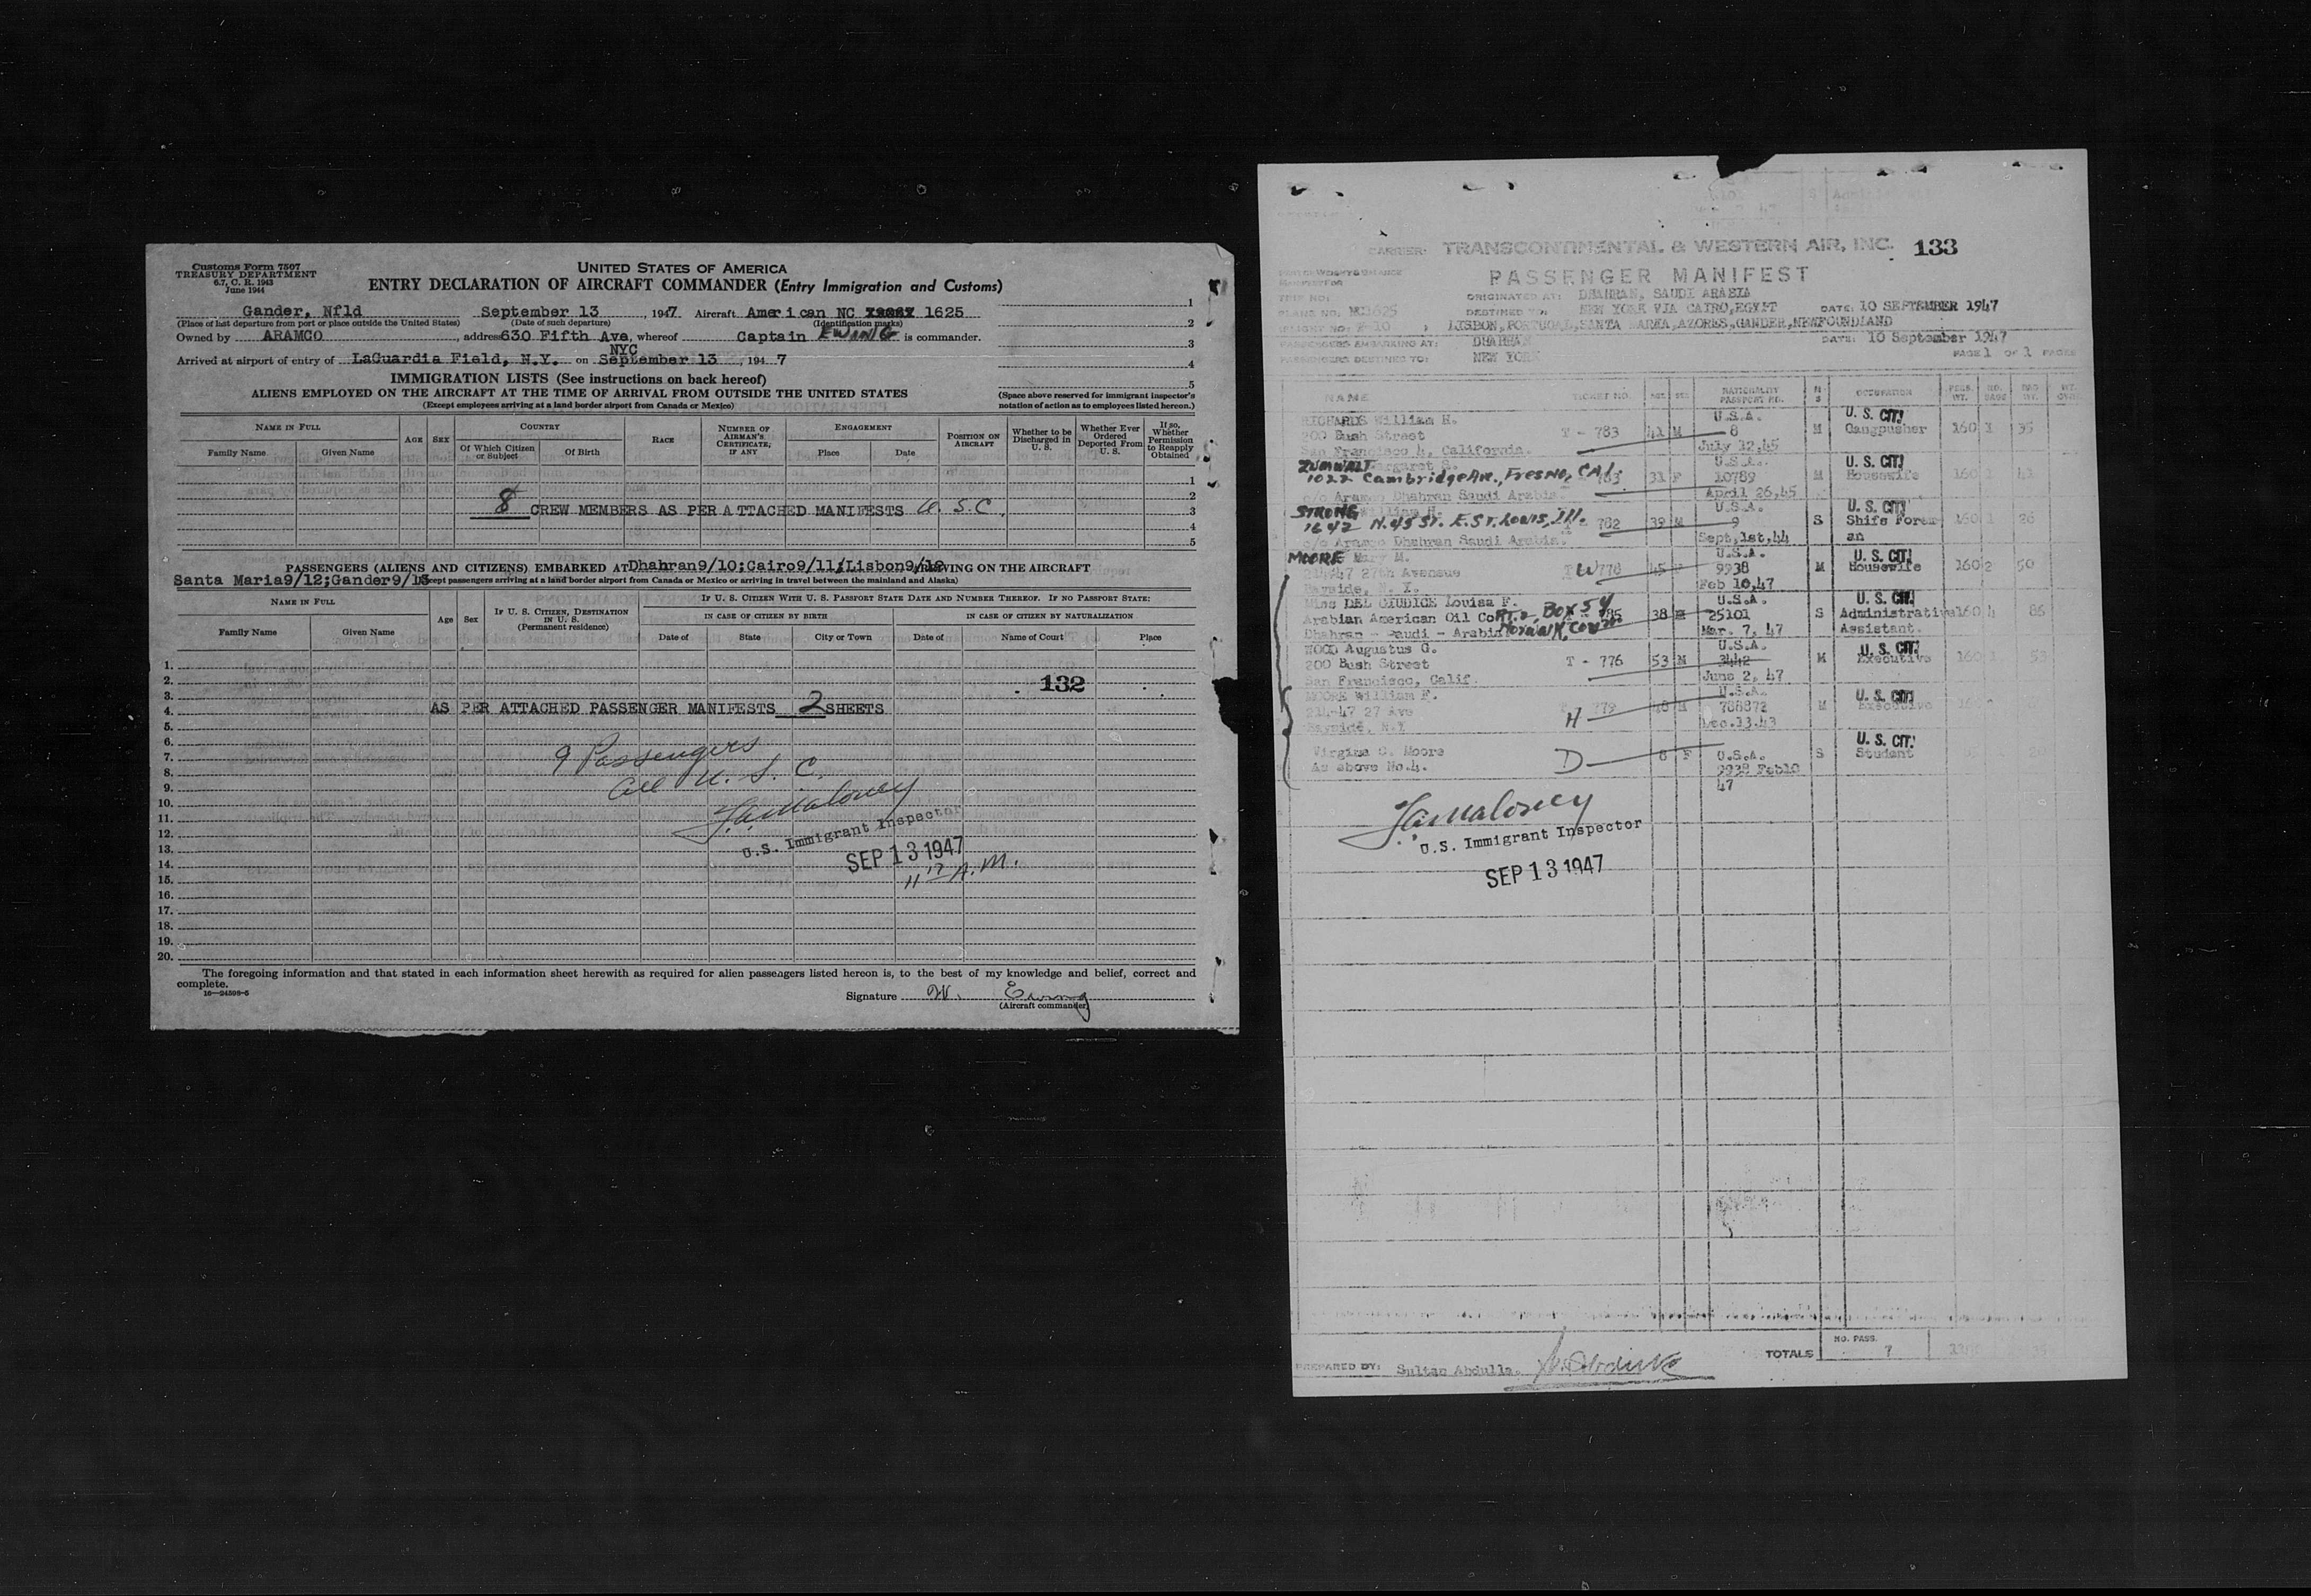 Customs Form 7507
TREASURY DEPARTMENT
6.7, C. R. 1943
June 1944
UNITED STATES OF AMERICA
ENTRY DECLARATION OF AIRCRAFT COMMANDER (Entry Immigration and Customs)
Gander, Nfld September 13, 1947. Aircraft American NC 1625
(Place of last departure from port or place outside the United States) (Date of such departure) (Identification marks)
Owned by ARAMCO, address 630 Fifth Ave, whereof Captain EWING is commander.
NYC
Arrived at airport of entry of LaGuardia Field, N.Y. on September 13, 1947
IMMIGRATION LISTS (See instructions on back hereof)
ALIENS EMPLOYED ON THE AIRCRAFT AT THE TIME OF ARRIVAL FROM OUTSIDE THE UNITED STATES
(Except employees arriving at a land border airport from Canada or Mexico)
1
2
3
4
5
(Space above reserved for immigrant inspector's notation of action as to employees listed hereon.)
NAME IN FULL
Family Name Given Name
AGE SEX
COUNTRY
Of Which Citizen or Subject Of Birth
RACE
NUMBER OF AIRMAN'S CERTIFICATE, IF ANY
ENGAGEMENT
Place Date
POSITION ON AIRCRAFT
Whether to be Discharged in U. S.
Whether Ever Ordered Deported From U. S.
If so, Whether Permission to Reapply Obtained
1
2
8 CREW MEMBERS AS PER ATTACHED MANIFESTS U. S. C.
3
4
5
PASSENGERS (ALIENS AND CITIZENS) EMBARKED AT Dhahran9/10;Cairo9/11;Lisbon9/12 ARRIVING ON THE AIRCRAFT
Santa Maria9/12;Gander9/13 (Except passengers arriving at a land border airport from Canada or Mexico or arriving in travel between the mainland and Alaska)
NAME IN FULL
Family Name Given Name
Age Sex
IF U. S. CITIZEN, DESTINATION IN U. S. (Permanent residence)
IF U. S. CITIZEN WITH U. S. PASSPORT STATE DATE AND NUMBER THEREOF. IF NO PASSPORT STATE:
IN CASE OF CITIZEN BY BIRTH IN CASE OF CITIZEN BY NATURALIZATION
Date of State City or Town Date of Name of Court Place
1.
2. 132
3.
4. AS PER ATTACHED PASSENGER MANIFESTS 2 SHEETS
5.
6.
7. 9 Passengers
8. All U. S. C.
9.
10. F.A. Maloney
11.
12. U.S. Immigrant Inspector
13. SEP 13 1947
14.
15.
16.
17.
18.
19.
20.
The foregoing information and that stated in each information sheet herewith as required for alien passengers listed hereon is, to the best of my knowledge and belief, correct and
complete.
16—24598-5
Signature W. Ewing
(Aircraft commander)
CARRIER: TRANSCONTINENTAL & WESTERN AIR, INC. 133
PASSENGER MANIFEST
ORIGINATED AT: DHAHRAN, SAUDI ARABIA
PLANE NO. NC1625 DESTINED TO: NEW YORK VIA CAIRO,EGYPT DATE: 10 SEPTEMBER 1947
LISBON,PORTUGAL,SANTA MARIA,AZORES,GANDER,NEWFOUNDLAND
PASSENGERS EMBARKING AT: DHAHRAN DATE: 10 September 1947
PASSENGERS DESTINED TO: NEW YORK PAGE 1 OF 1 PAGES
NAME TICKET NO. AGE SEX NATIONALITY PASSPORT NO. M S OCCUPATION PERS. WT. NO. BAGS BAG WT.
RICHARDS William H. U.S.A. U. S. CIT.
200 Bush Street T - 783 41 M 8 M Gangpusher 160 1 35
San Francisco 4, California. July 12,45
ZUMWALT Margaret U.S.A. U. S. CIT.
1022 Cambridge Av., Fresno, Cal. 31 F 10789 M Housewife 160
c/o Aramco Dhahran Saudi Arabia. April 26,45
STRONG William H. U.S.A. U. S. CIT.
1642 N. 45 St. E. St. Louis, Ill. 782 39 M 9 S Shift Forem 160
c/o Aramco Dhahran Saudi Arabia. Sept,1st,44 an
MOORE Mary M. U.S.A. U. S. CIT.
27th Avenue W 778 45 F 9938 M Housewife 160 2 50
Bayside, N. Y. Feb 10,47
Miss DEL GIUDICE Louisa F. U.S.A. U. S. CIT.
Arabian American Oil Co Box 54 785 38 25101 S Administrative 160 4 86
Dhahran - Saudi - Arabia Norwalk, Conn. Mar. 7, 47 Assistant.
WOOD Augustus G. U.S.A. U. S. CIT.
200 Bush Street T - 776 53 M 3442 M Executive 160 53
San Francisco, Calif. June 2, 47
MOORE William F. U.S.A. U. S. CIT.
27 Ave H 779 48 M 788872 M Executive 160
Bayside, N.Y Dec.13.43
U. S. CIT.
Virgina C. Moore D 8 F U.S.A. S Student
As above No.4. 9938 Feb10
47
F.A. Maloney
U.S. Immigrant Inspector
SEP 13 1947
NO. PASS.
TOTALS 7
PREPARED BY: Sultan Abdulla.